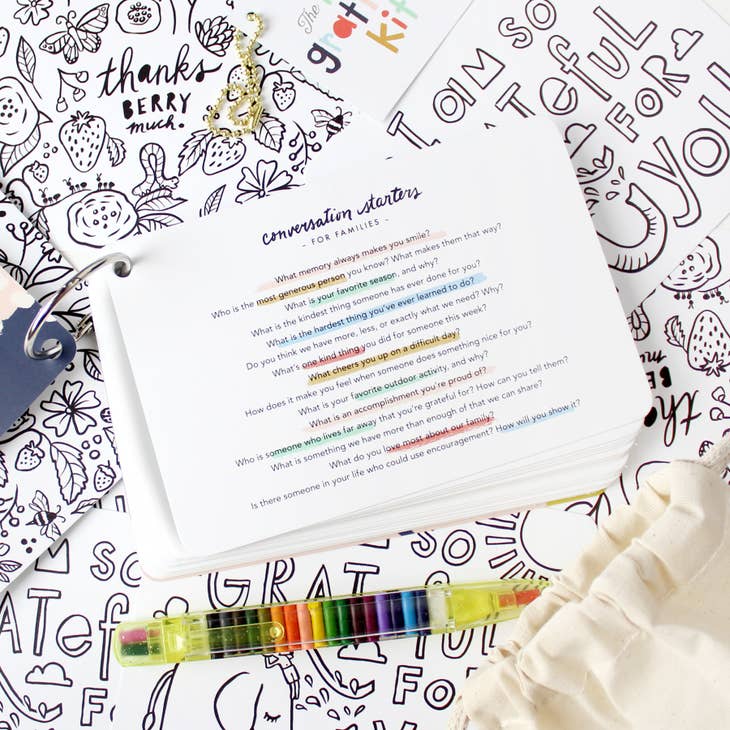 thanks
BERRY
much.
The
grat
kit
I am SO
GRATEFUL
FOR
you
conversation starters
- FOR FAMILIES -
What memory always makes you smile?
Who is the most generous person you know? What makes them that way?
What is your favorite season, and why?
What is the kindest thing someone has ever done for you?
What is the hardest thing you've ever learned to do?
Do you think we have more, less, or exactly what we need? Why?
What's one kind thing you did for someone this week?
What cheers you up on a difficult day?
How does it make you feel when someone does something nice for you?
What is your favorite outdoor activity, and why?
What is an accomplishment you're proud of?
Who is someone who lives far away that you're grateful for? How can you tell them?
What is something we have more than enough of that we can share?
What do you love most about our family?
Is there someone in your life who could use encouragement? How will you show it?
th
BERRY
mu
SO
ATEFUL
FOR
am SO
GRATEFUL
FOR